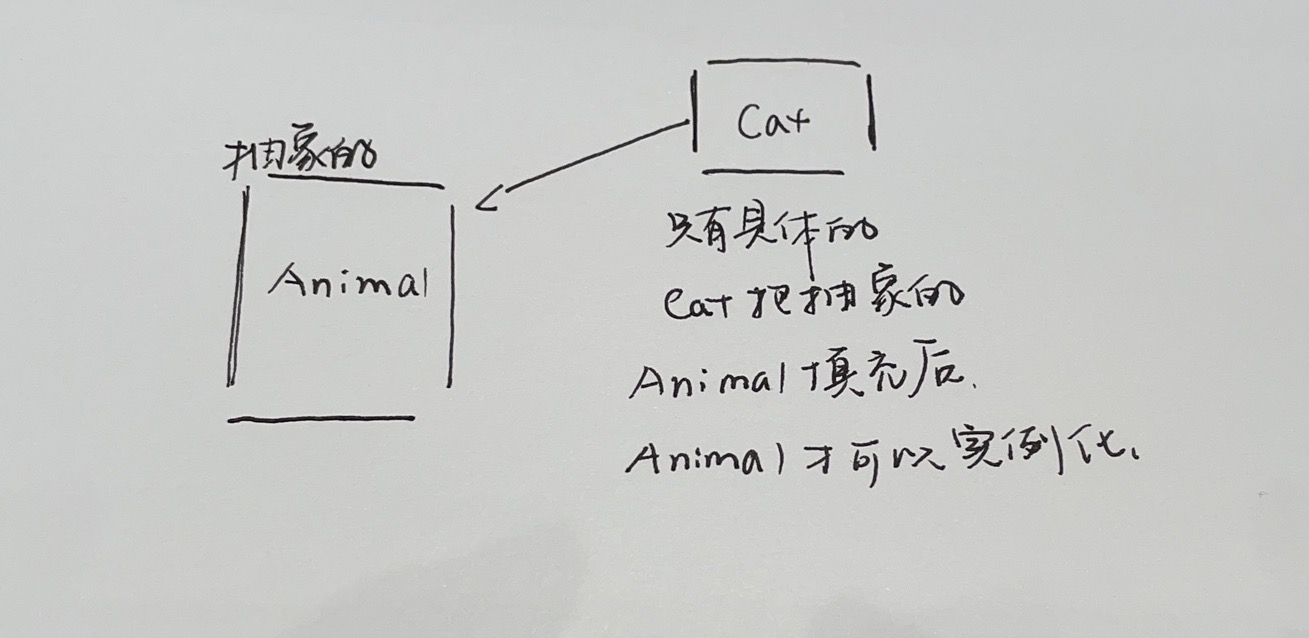 Cat
抽象的
Animal
只有具体的
Cat把抽象的
Animal填充后.
Animal才可以实例化.